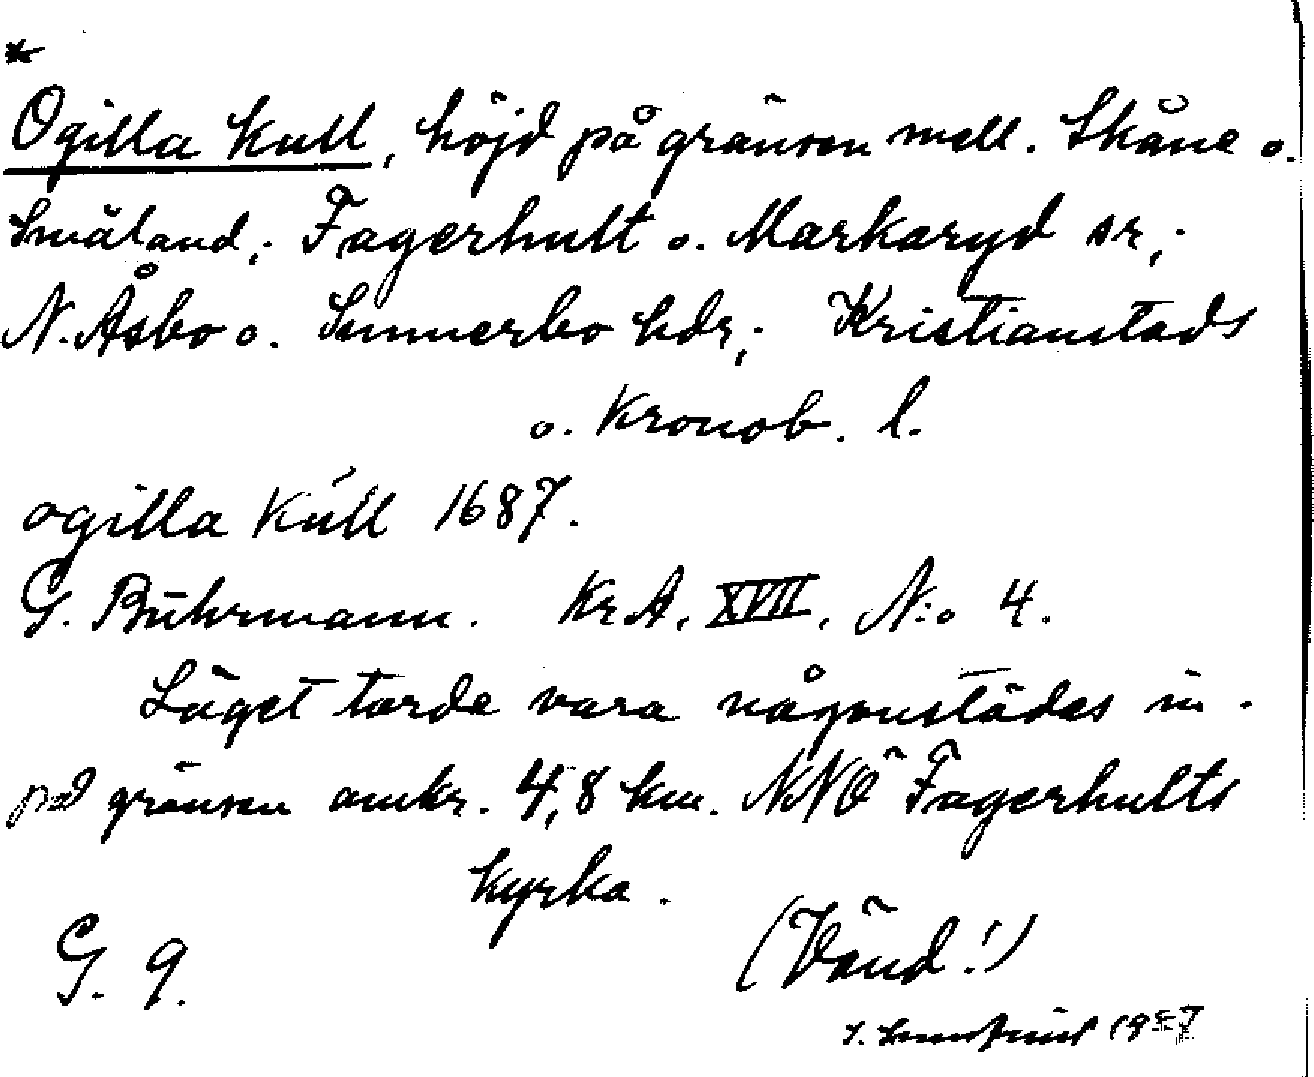 *
Ogilla Kull, höjd på gränsen mell. Skåne o.
Småland; Fagerhult o. Markaryd sr;
N. Åsbo o. Sunnerbo hdr; Kristianstads
o. Kronob. l.
ogilla Kúll 1687.
G. Bührmann. Kr.A. XVII, N:o 4.
Läget torde vara någonstädes in-
på gränsen omkr. 4,8 km. NNÖ Fagerhults
kyrka.
G. 9.
(Vänd!)